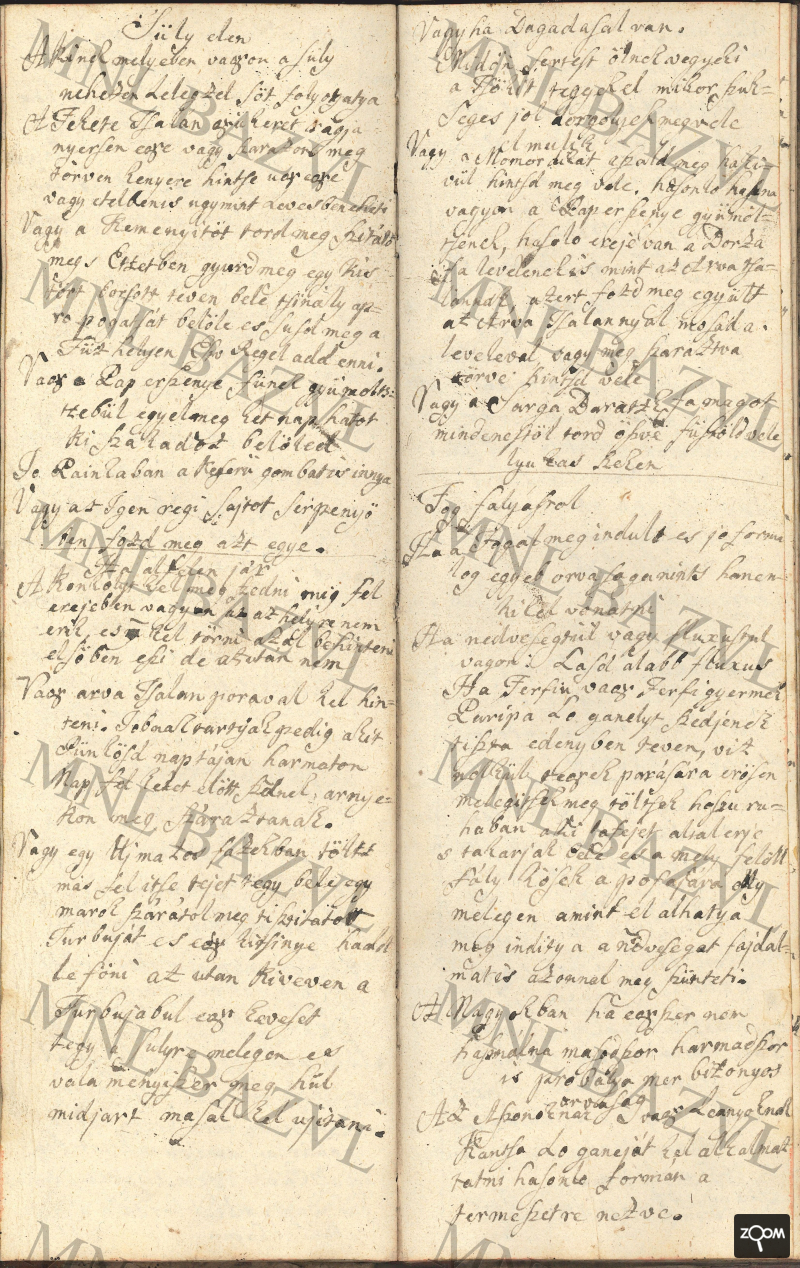 Süly ellen
A kinek mellyében vagyon a süly
nehezen Lelegzel söt folyogatya
A Fekete Tsalan gyükeret ragja
nyersen egye vagy szarazon meg
törven kenyere hintse ugy egye
vagy etelbenis ugymint levesben eheti
Vagy a Kemenyitöt tord meg szitáld
meg s Etzetben gyurd meg egy kis
bort tseven belé tsinaly ap=
ro pogatsát belöle es susd meg a
Tüz helyen Ebo Regel add enni.
Vagy a Pap erszenye fünek gyümölts=
tzebül egyel meg ket nap hatot
ki szakadoz belöled
Jo Rainkaban a Keserü gombatis innya
Vagy az Igen regi sajtot serpenyö
ben sozd meg azt egye.
Ha alfelen jár
A Konkolyt kel meg szedni mig fel
erejeben vagyon az az helyre nem
erik, es kel törni azzal behinteni
elsöben esi de azutan nem
Vagy arva Tsalan poraval kel hin=
teni. Jobnak tartyak pedig akit
Pünkösd naptájan harmaton
Nap fel kelet elött szednek, arnye=
kon meg szárasztanak.
Vagy egy Uj mazos fazekban tölts
más fel itse tejet tegy bele egy
marok szárátol meg tisztitatott
Turbuját es egy kitsinye hadd
le föni az utan kiveven a
Turbujabul egy keveset
tegy a sulyre melegen es
vala menyiszer meg hül
midjart massal kel ujitani.
Vagy ha Dagadasal van.
Midön sertest ölnek vegye ki
a Körit tegye el mikor szük=
seges jol dorgöljek meg vele
el mulik
Vagy a Momordikát aszald meg hasi
vül hintsd meg vele. hasonlo haszna
vagyon a Pap erszenye gyümöl=
tsenek, hasolo ereje van a Borza
fa levelenek is mint az Arva tsa=
lannak azert fozd meg együtt
az Arva Tsalannyal mosad a
levelevel vagy meg szarasztva
törve hintsd vele
Vagy a Sarga Baratzk fa magot
mindenestöl tord öszve füstöld vele
lyukas szeken
Fog fajasrol
Ha a Fogat meg indult es jo forma
log egyeb orvassaga nints hanem=
ki kel vonatni
Ha nedvesegtül vagy fluxustul
vagon: Lasd alább fluxus
Ha Ferfiu vagy Ferfi gyermek
Paripa Lo ganelyt szedjenek
tiszta edenyben teven, viz
nélkül tegyek parására erösen
melegitsek meg töltsek hoszu ru=
haban aki tafejet altal erje
s takarják bele es a mely felött
fály kösek a pofajára oly
melegen amint el alhatya
meg indittya a nedveseget fajdal=
matis azonnal meg szünteti.
Az Nagyokban ha egyszer nem
hasznalna masodszor harmadszor
is probalya mer bizonyos
orvassag
Az Aszonoknak vagy Leanyoknak
Kantza Lo ganeját kel alkalmaz
tatni hasonlo forman a
termeszetre nezve.
MNL BAZVL
ZOOM